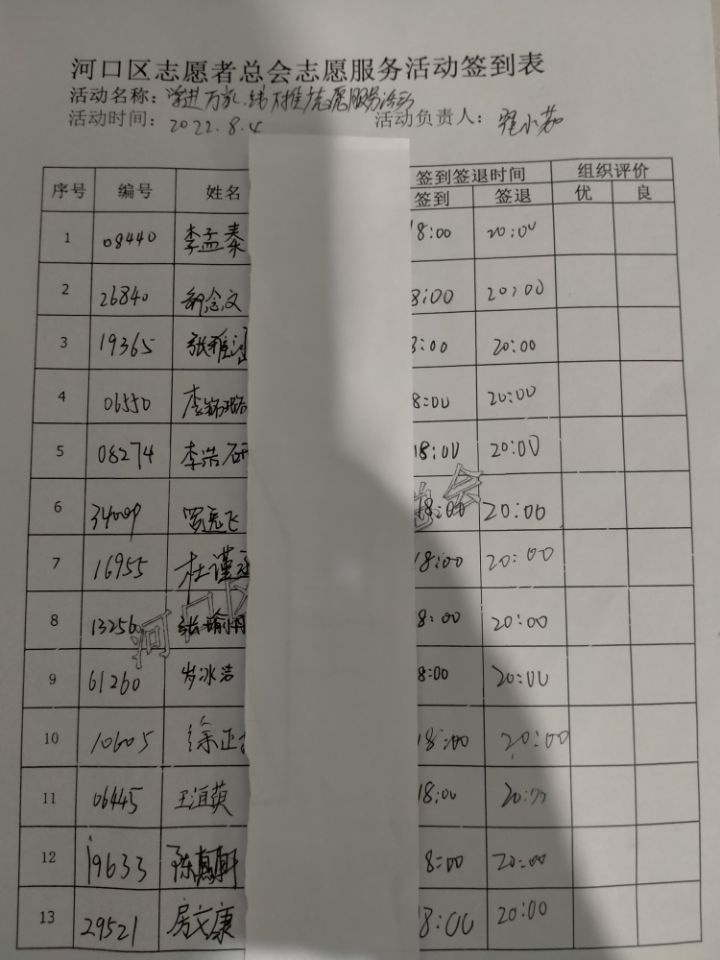 河口区志愿者总会志愿服务活动签到表
活动名称：学进万家、线下推广志愿服务活动
活动时间：2022.8.4 活动负责人：
序号 编号 姓名 签到签退时间 组织评价
签到 签退 优 良
1 08440 李孟泰 18:00 20:00
2 26840 8:00 20:00
3 19365 张雅涵 :00 20:00
4 06550 李 8:00 20:00
5 08274 李浩研 18:00 20:00
6 34009 罗亮飞 18:00 20:00
7 16955 杜谨 18:00 20:00
8 13256 张 8:00 20:00
9 61260 岁冰洁 8:00 20:00
10 10605 徐正 18:00 20:00
11 06445 王 18:00 20:00
12 19633 陈 8:00 20:00
13 29521 房文康 18:00 20:00
河口区 总会